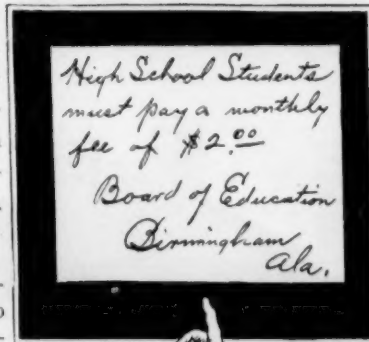 High School Students
must pay a monthly
fee of $2.00
Board of Education
Birmingham
Ala.